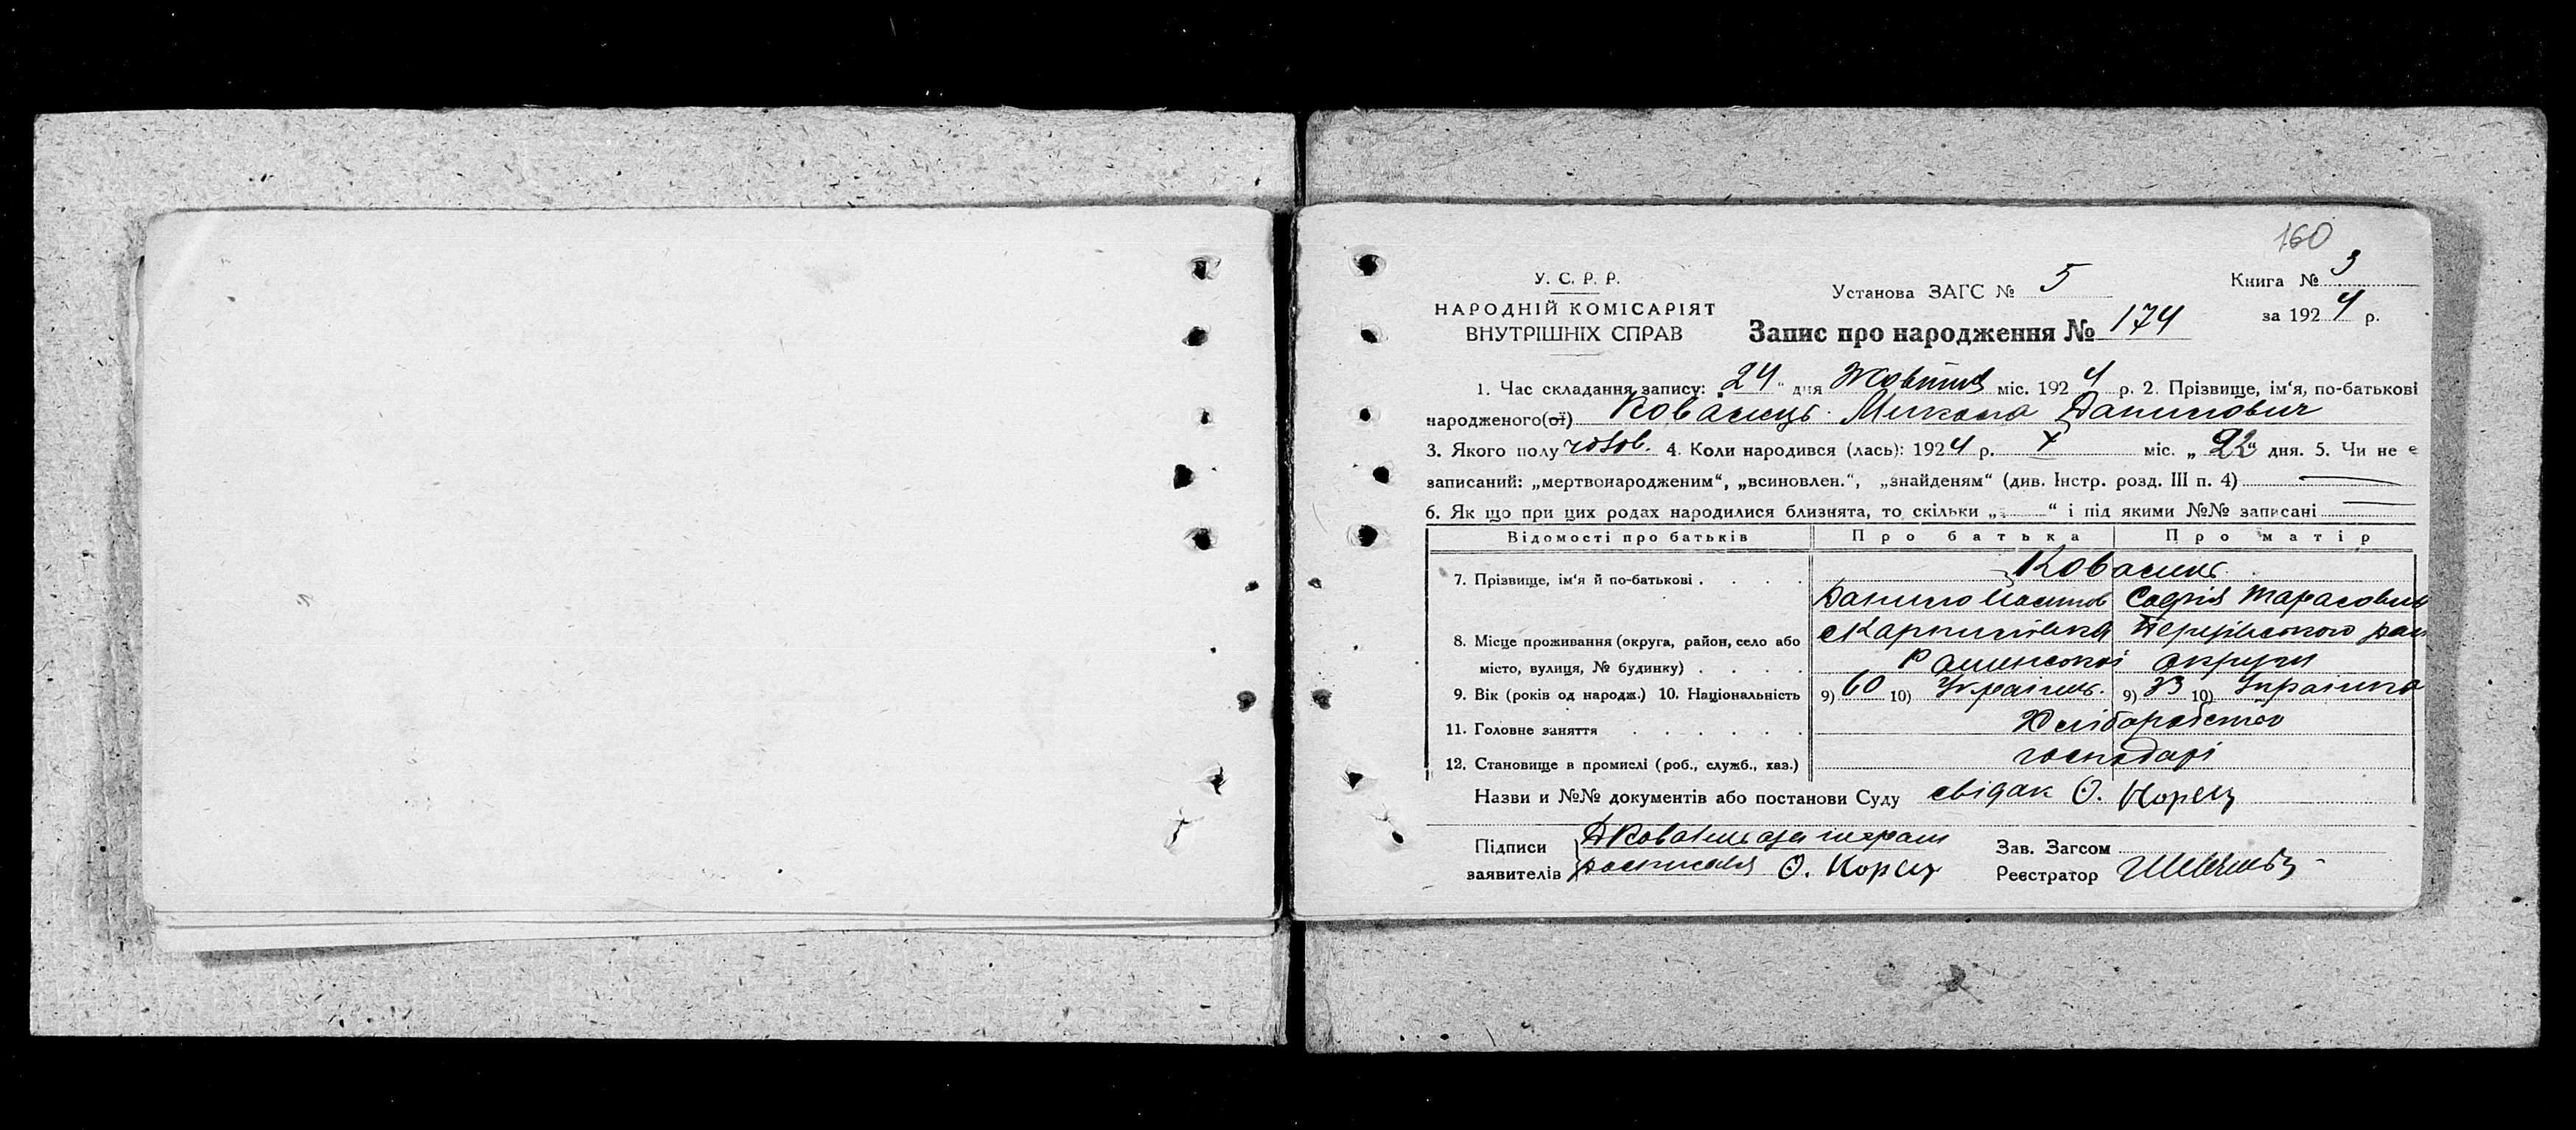 160
У. С. Р. Р.
НАРОДНІЙ КОМІСАРІЯТ
ВНУТРІШНІХ СПРАВ
Установа ЗАГС № 5
Книга № 3
за 1924 р.
Запис про народження № 174
1. Час складання запису: 24 " дня Жовтня міс. 1924 р. 2. Прізвище, ім‘я, по-батькові
народженого(ої) Микола Данилович
3. Якого полу чолов. 4. Коли народився (лась): 1924 р. X міс. „ 22 " дня. 5. Чи не є
записаний: „мертвонародженим“, „всиновлен.“, „знайденям“ (див. Інстр. розд. III п. 4)
6. Як що при цих родах народилися близнята, то скільки „ “ і під якими №№ записані
Відомості про батьків Про батька Про матір
7. Прізвище, ім‘я й по-батькові
Данило Софія Тарасовна
8. Місце проживання (округа, район, село або
місто, вулиця, № будинку) округи
9. Вік (років од народж.) 10. Національність 9) 60 10) Українець. 9) 33 10) Українка
11. Головне заняття Хліборобство
12. Становище в промислі (роб., служб., хаз.) господарі
Назви и №№ документів або постанови Суду свідак О. Корец
Підписи
заявителів О. Корец
Зав. Загсом
Реєстратор